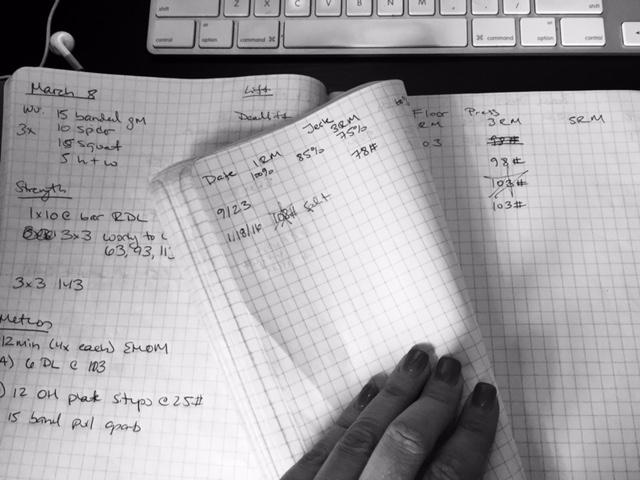 March 8
WU: 15 banded gm
3x 10 spider
15 squat
5 h + w
Strength
1x10 @ bar RDL
3x3 work to
63, 93, 11
3x3 143
Metcon
12min (4x each) EMOM
A) 6 DL @ 103
) 12 OH plate steps @ 25#
15 band pull aparts
Lift
Deadlift
Jerk
Date 1RM 3RM
100% 85% 75%
9/23 78#
1/18/16 108#
Floor Press
RM 3RM 5RM
03
98#
103#
103#
control option command
Z X C V B N M
command option control